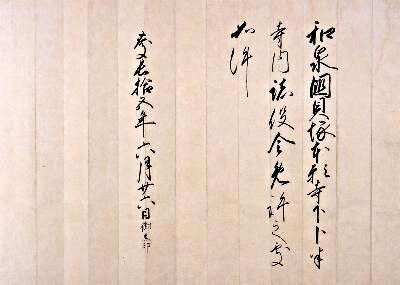 和泉國貝塚本願寺下卜半
寺内諸役令免許之状
如件
慶長拾五年六月廿六日御朱印